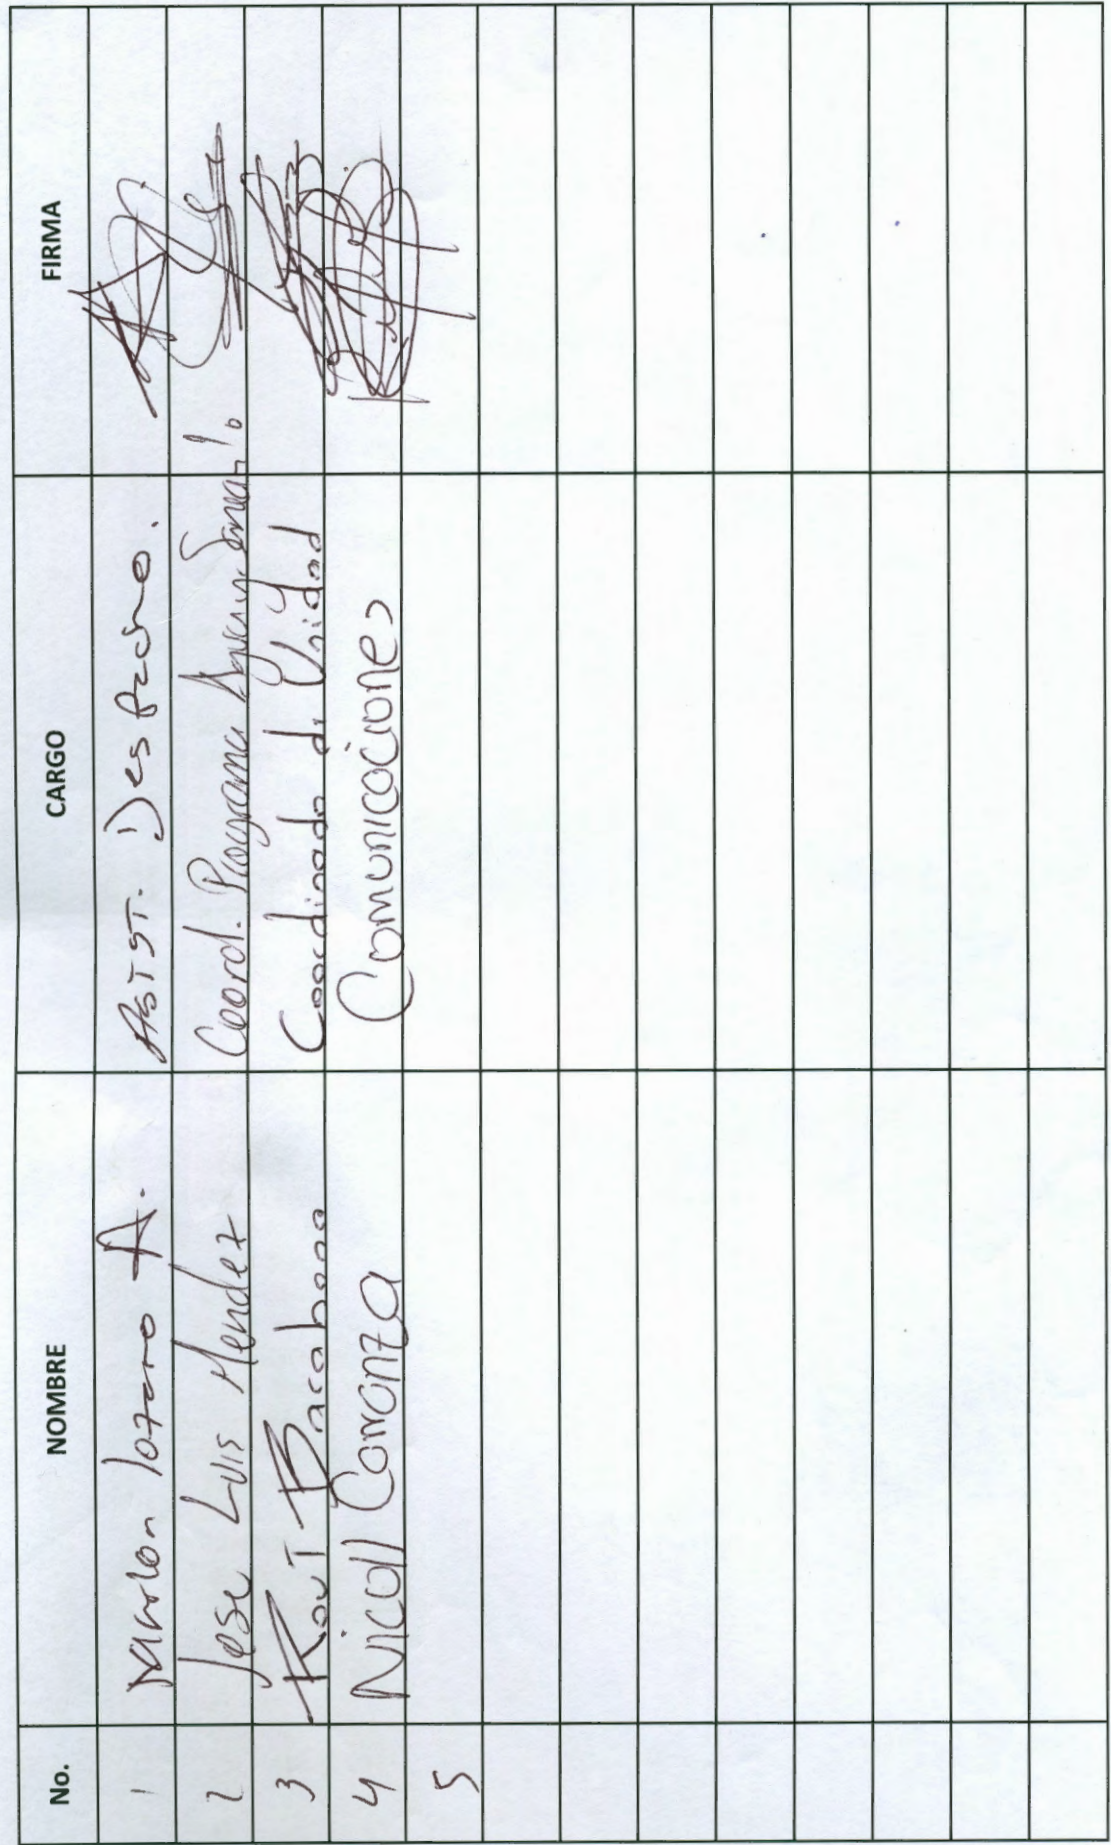 No. NOMBRE CARGO FIRMA
1 Marlon Lozano A. Asist. Despacho.
2 Jose Luis Mendez Coord. Programa
3 Barahona Coordinado de Unidad
4 Nicoll Carranza Comunicaciones
5